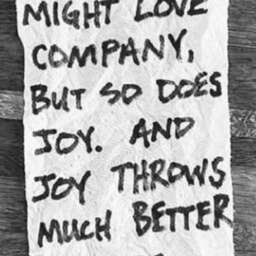 MIGHT LOVE
COMPANY,
BUT SO DOES
JOY. AND
JOY THROWS
MUCH BETTER